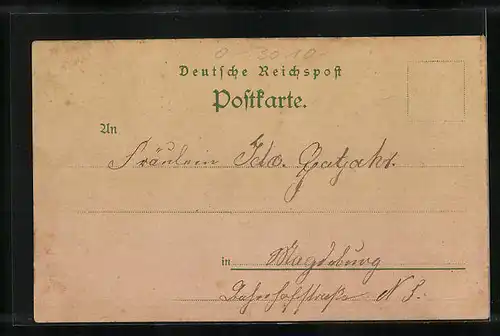 0-3010-
Deutsche Reichspost
Postkarte.
An
Fräulein Ida.
in Magdeburg
Bahnhofstraße N